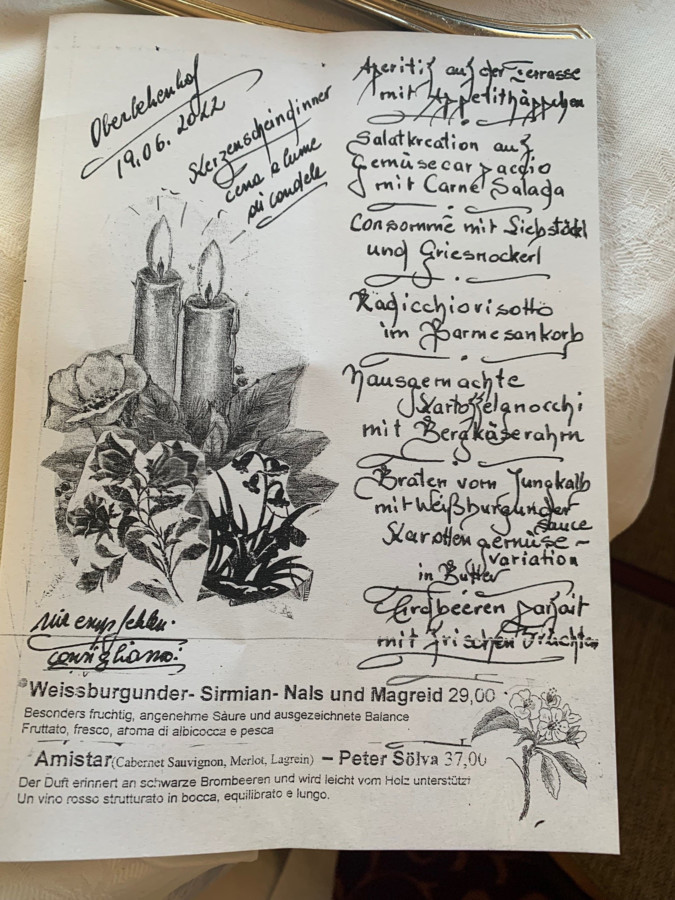 Oberlehenhof
19.06.2022
Kerzenscheindinner
Cena a lume
di candele
Aperitif auf der Terrasse
mit Appetithäppchen
Salatkreation auf
Gemüsecarpaccio
mit Carne Salada
Consommè mit Liebstöckl
und Griesnockerl
Radicchiorisotto
im Parmesankorb
Hausgemachte
Kartoffelgnocchi
mit Bergkäserahm
Braten vom Jungkalb
mit Weißburgunder
sauce
Karottengemüse-
variation
in Butter
Erdbeeren parfait
mit frischen Früchten
Wir empfehlen:
consigliamo:
Weissburgunder- Sirmian- Nals und Magreid 29,00
Besonders fruchtig, angenehme Säure und ausgezeichnete Balance
Fruttato, fresco, aroma di albicocca e pesca
Amistar(Cabernet Sauvignon, Merlot, Lagrein) – Peter Sölva 37,00
Der Duft erinnert an schwarze Brombeeren und wird leicht vom Holz unterstützt
Un vino rosso strutturato in bocca, equilibrato e lungo.